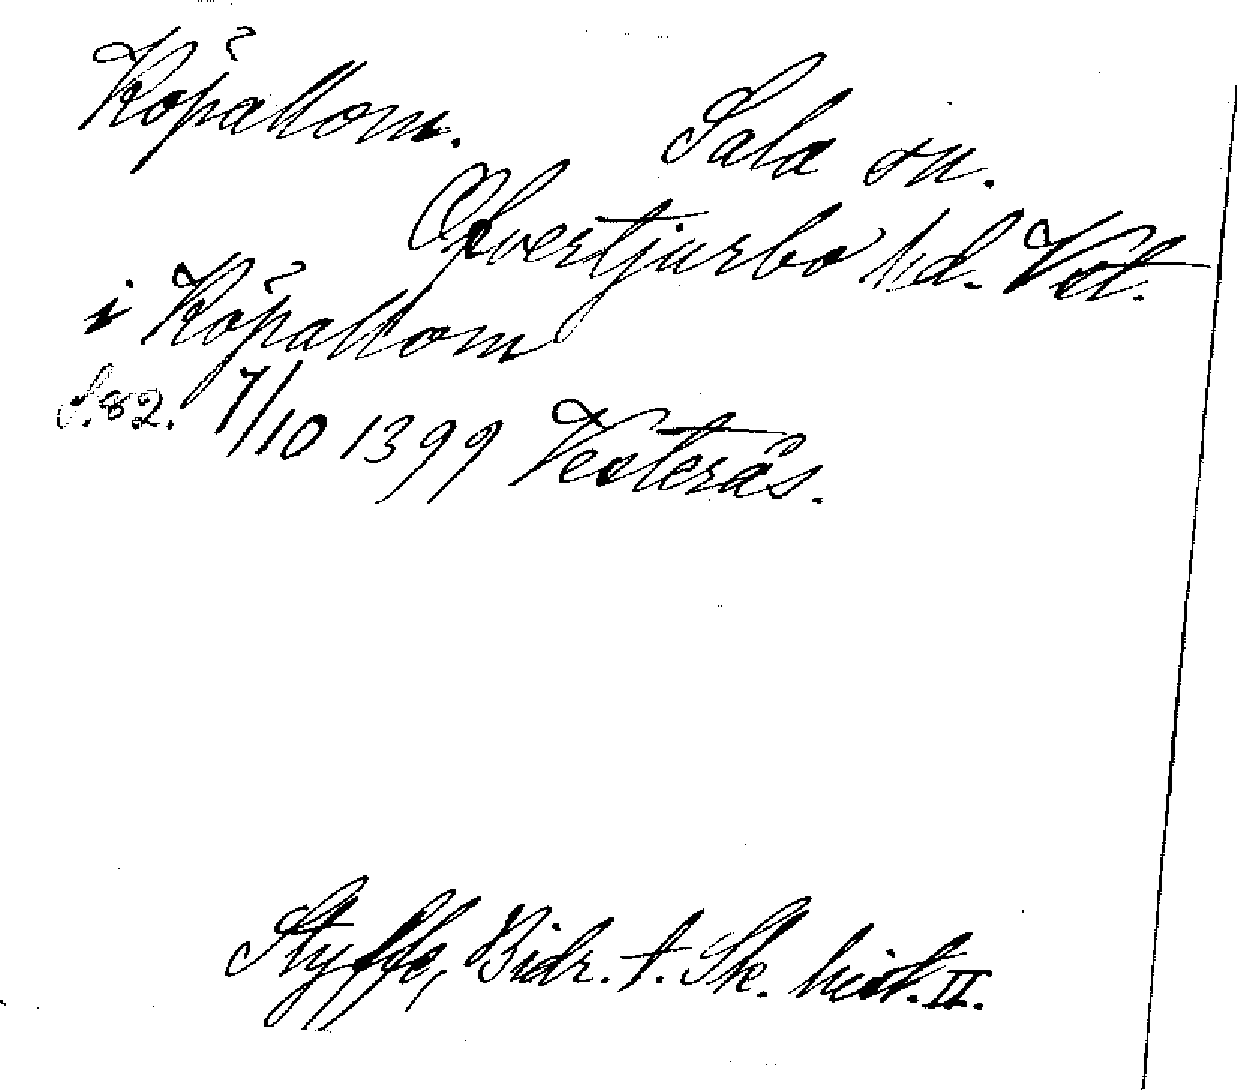 Köpallom. Sala sn.
Övertjurbo hd. Vst.
i Köpallom
S. 82. 7/10 1399 Vesterås.
Styffe, Bidr. t. Sk. hist. II.